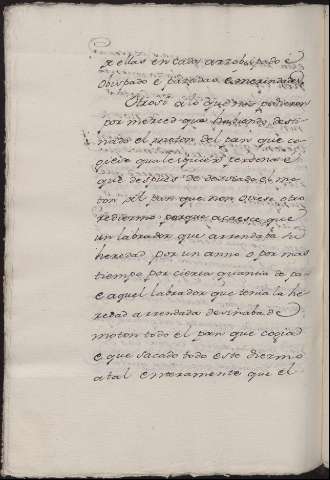 rellas en cada arzobispado e
obispado e paradas e merindades
Otrosi a lo que me pidieron
por merced que
nado el monton del pan que co
giere qualesquier persona e
que despues de desmado el mo
ton del pan que non oviese otro
rediezmo porque acaesce que
un labrador que arrendaba su
heredad por un anno o por mas
tiempo por cierta quantia de pan
e aquel labrador que tenia la he
redad arrendada desmaba de
monton todo el pan que cogia
e que sacado todo este diezmo
atal enteramente que el